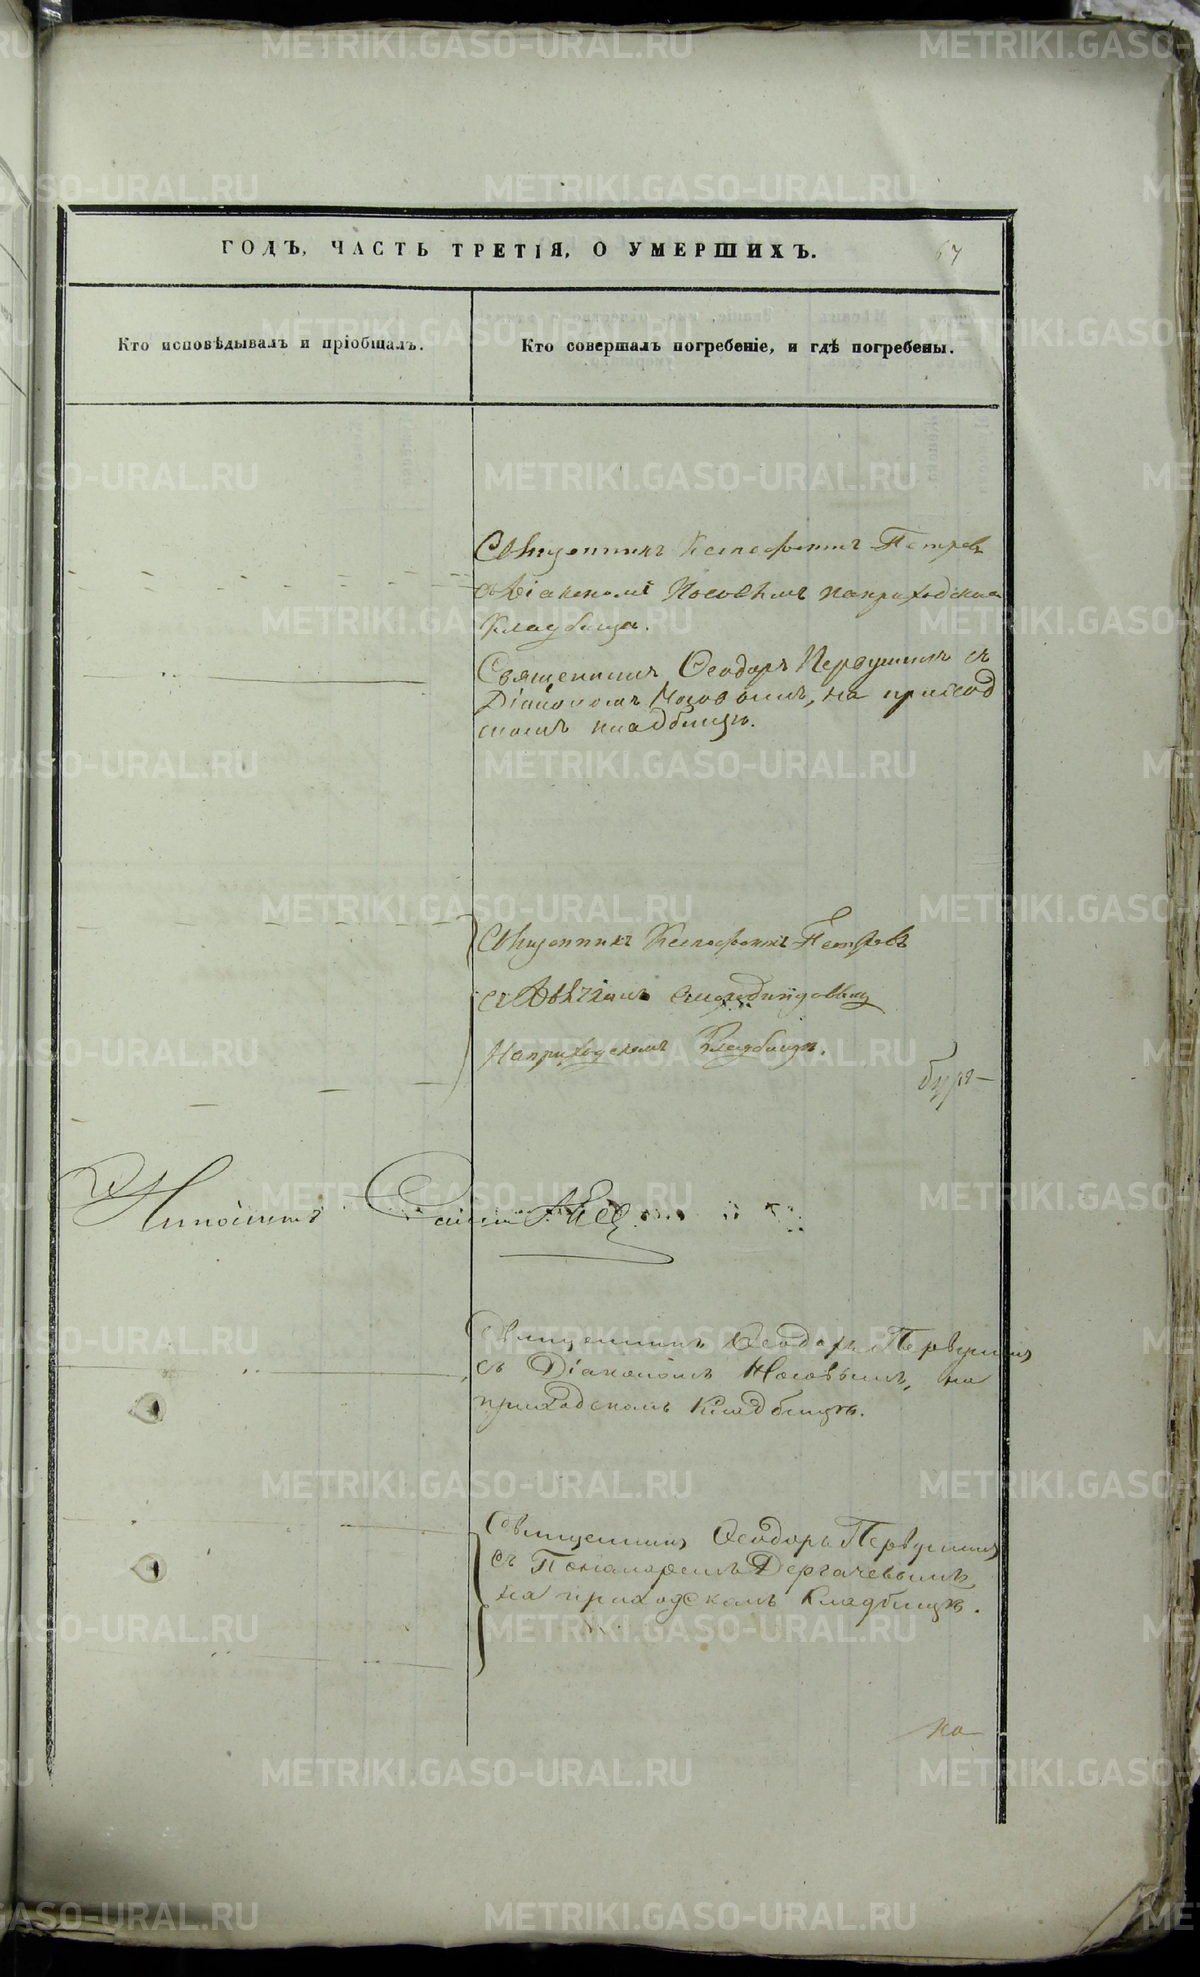 ГОДЪ, ЧАСТЬ ТРЕТІЯ, О УМЕРШИХЪ.
67
Кто исповѣдывалъ и пріобщалъ.
Кто совершалъ погребеніе, и гдѣ погребены.
Священникъ Ксенофонтъ Петровъ
съ Діакономъ Носовымъ на приходскомъ
кладбищѣ.
Священникъ Ѳеодоръ Первушинъ съ
Діакономъ Носовымъ, на приход
скомъ кладбищѣ.
Священникъ Ксенофонтъ Петровъ
на приходскомъ кладбищѣ.
бург-
Священникъ Ѳеодоръ Первушинъ
съ Діакономъ Носовымъ, на
приходскомъ кладбищѣ.
Священникъ Ѳеодоръ Первушинъ
съ Пономаремъ Дергачевымъ,
на приходскомъ кладбищѣ.
на
METRIKI.GASO-URAL.RU